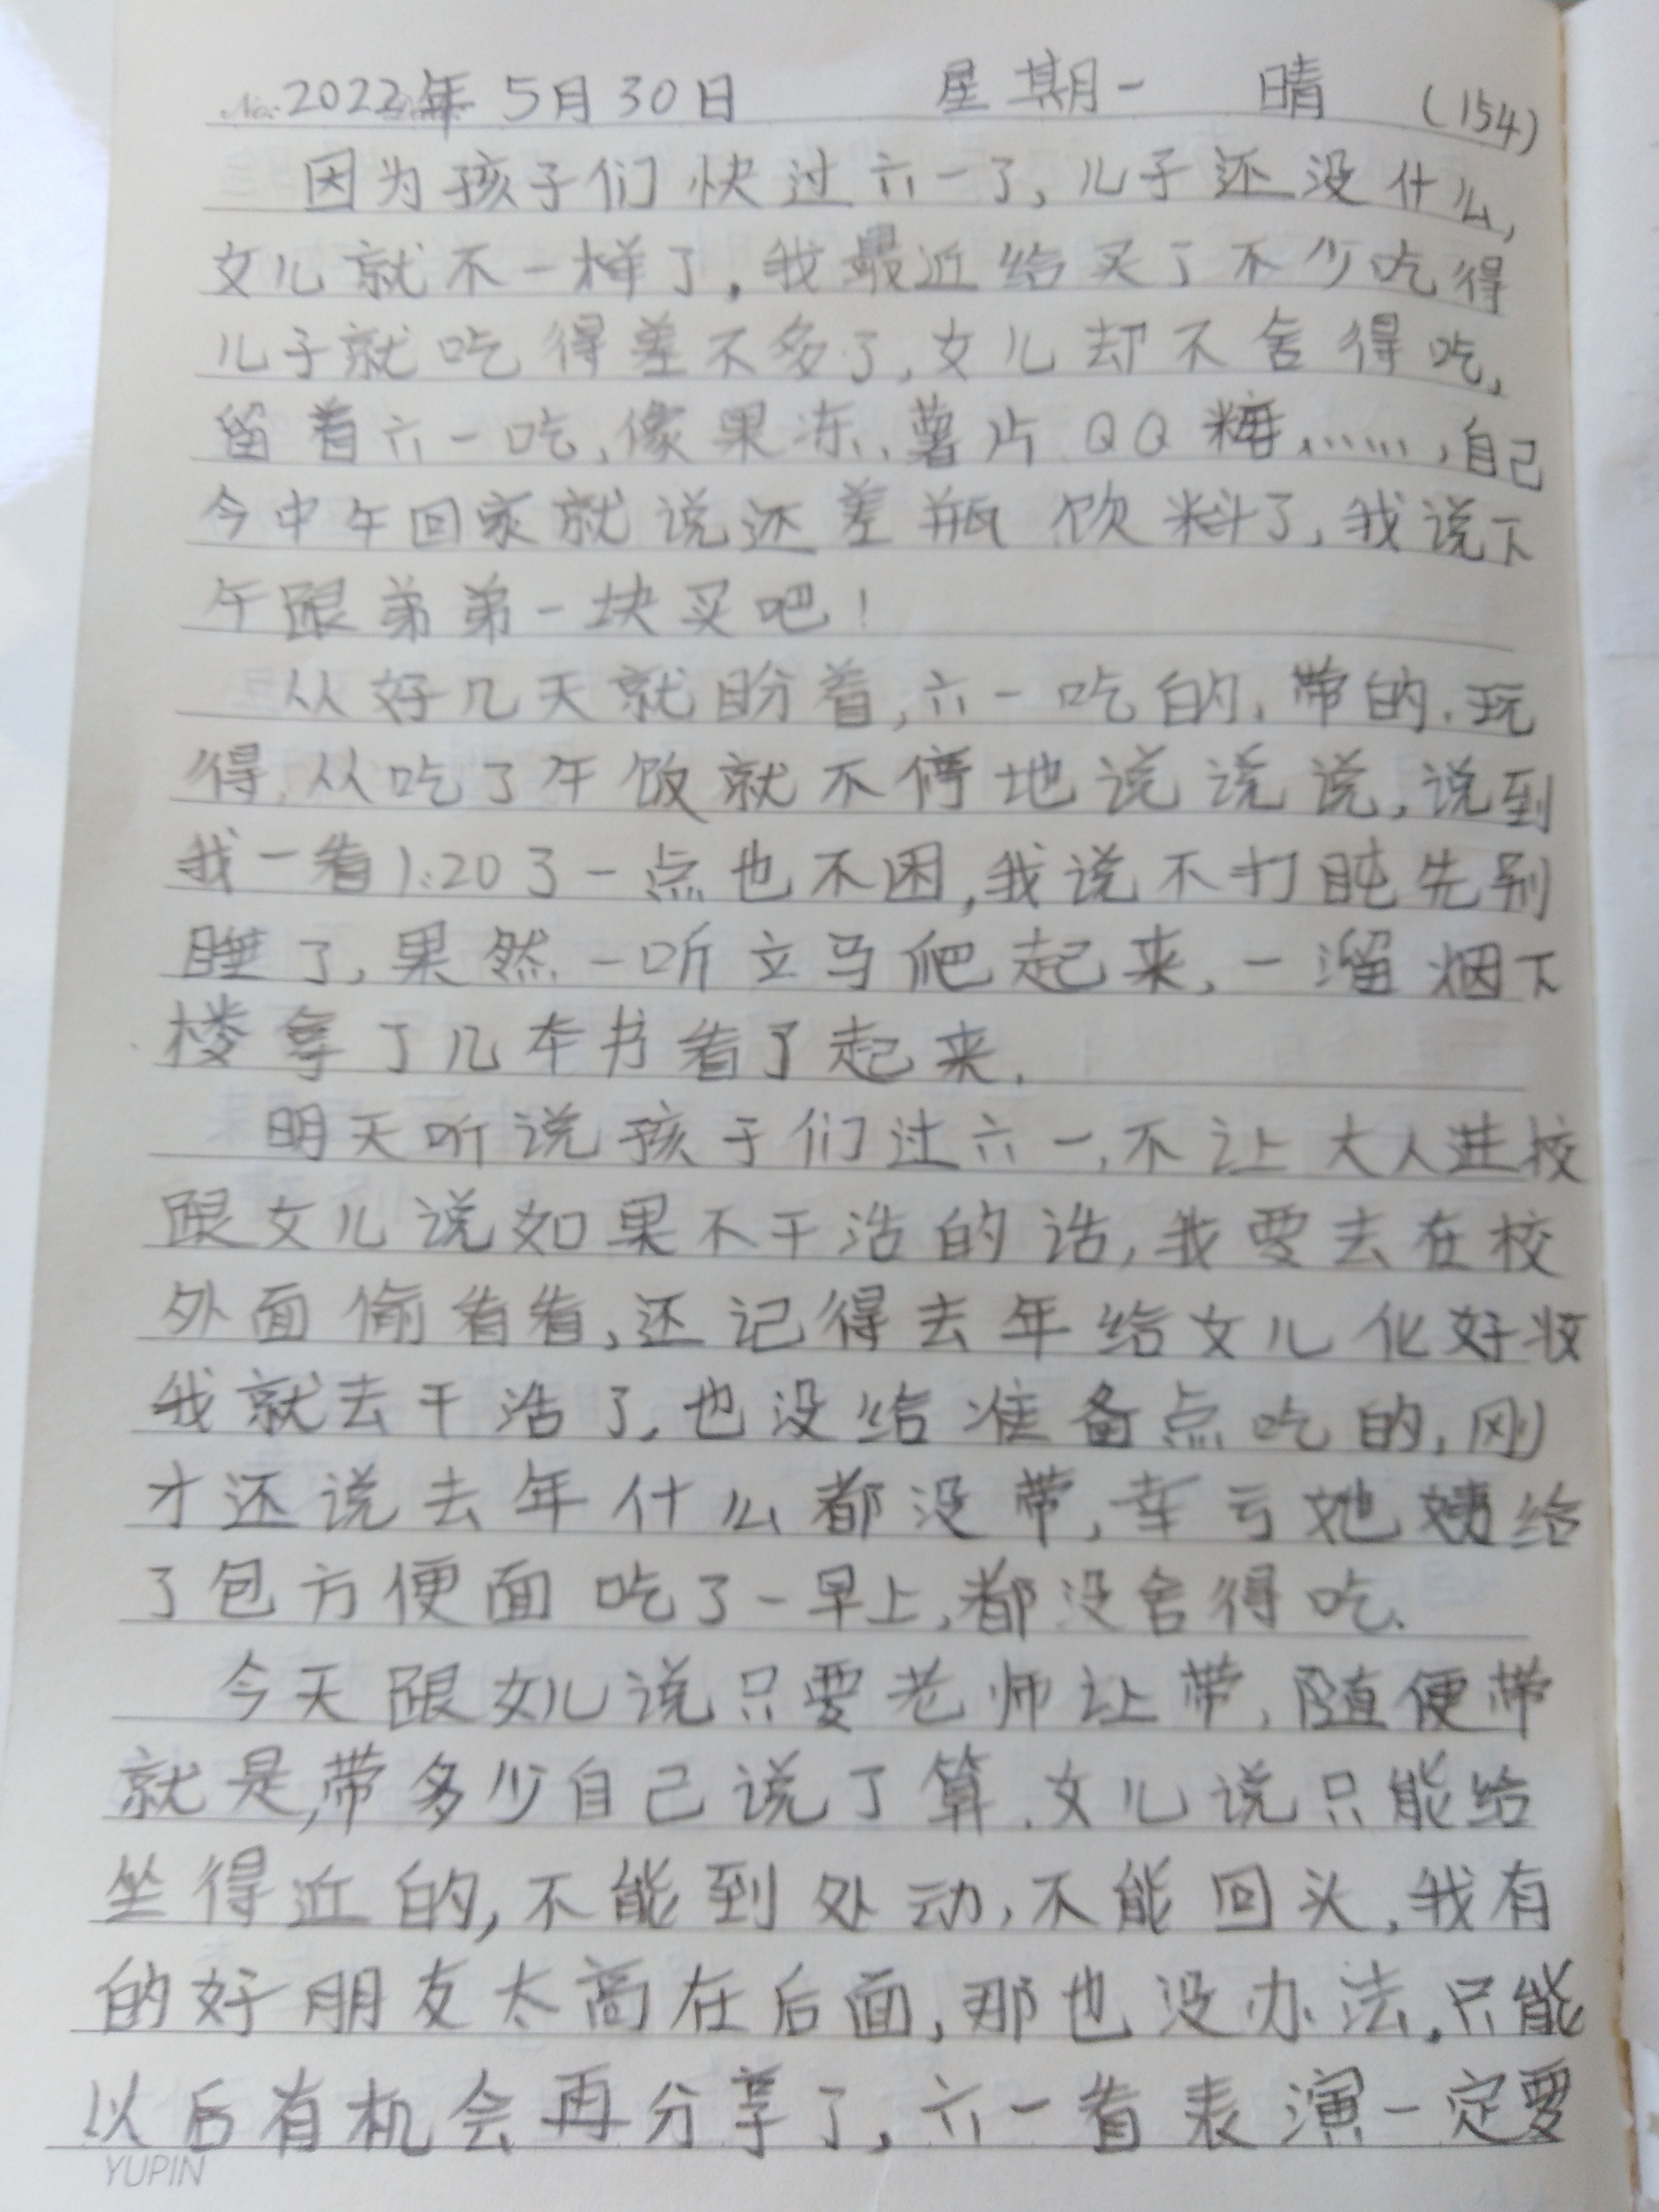 No. 2022年 5月30日 星期一 晴 (154)
因为孩子们快过六一了,儿子还没什么,
女儿就不一样了,我最近给买了不少吃得
儿子就吃得差不多了,女儿却不舍得吃,
留着六一吃,像果冻、薯片、QQ糖……,自己
今中午回家就说还差瓶饮料了,我说下
午跟弟弟一块买吧!
从好几天就盼着,六一吃的、带的、玩
得,从吃了午饭就不停地说说说,说到
我一看1:20了一点也不困,我说不打盹先别
睡了,果然一听立马爬起来,一溜烟下
楼拿了几本书看了起来.
明天听说孩子们过六一,不让大人进校
跟女儿说如果不干活的话,我要去在校
外面偷看看,还记得去年给女儿化好妆
我就去干活了,也没给准备点吃的,刚
才还说去年什么都没带,幸亏她姨给
了包方便面吃了一早上,都没舍得吃.
今天跟女儿说只要老师让带,随便带
就是,带多少自己说了算.女儿说只能给
坐得近的,不能到处动,不能回头,我有
的好朋友太高在后面,那也没办法,只能
以后有机会再分享了,六一看表演一定要
YUPIN